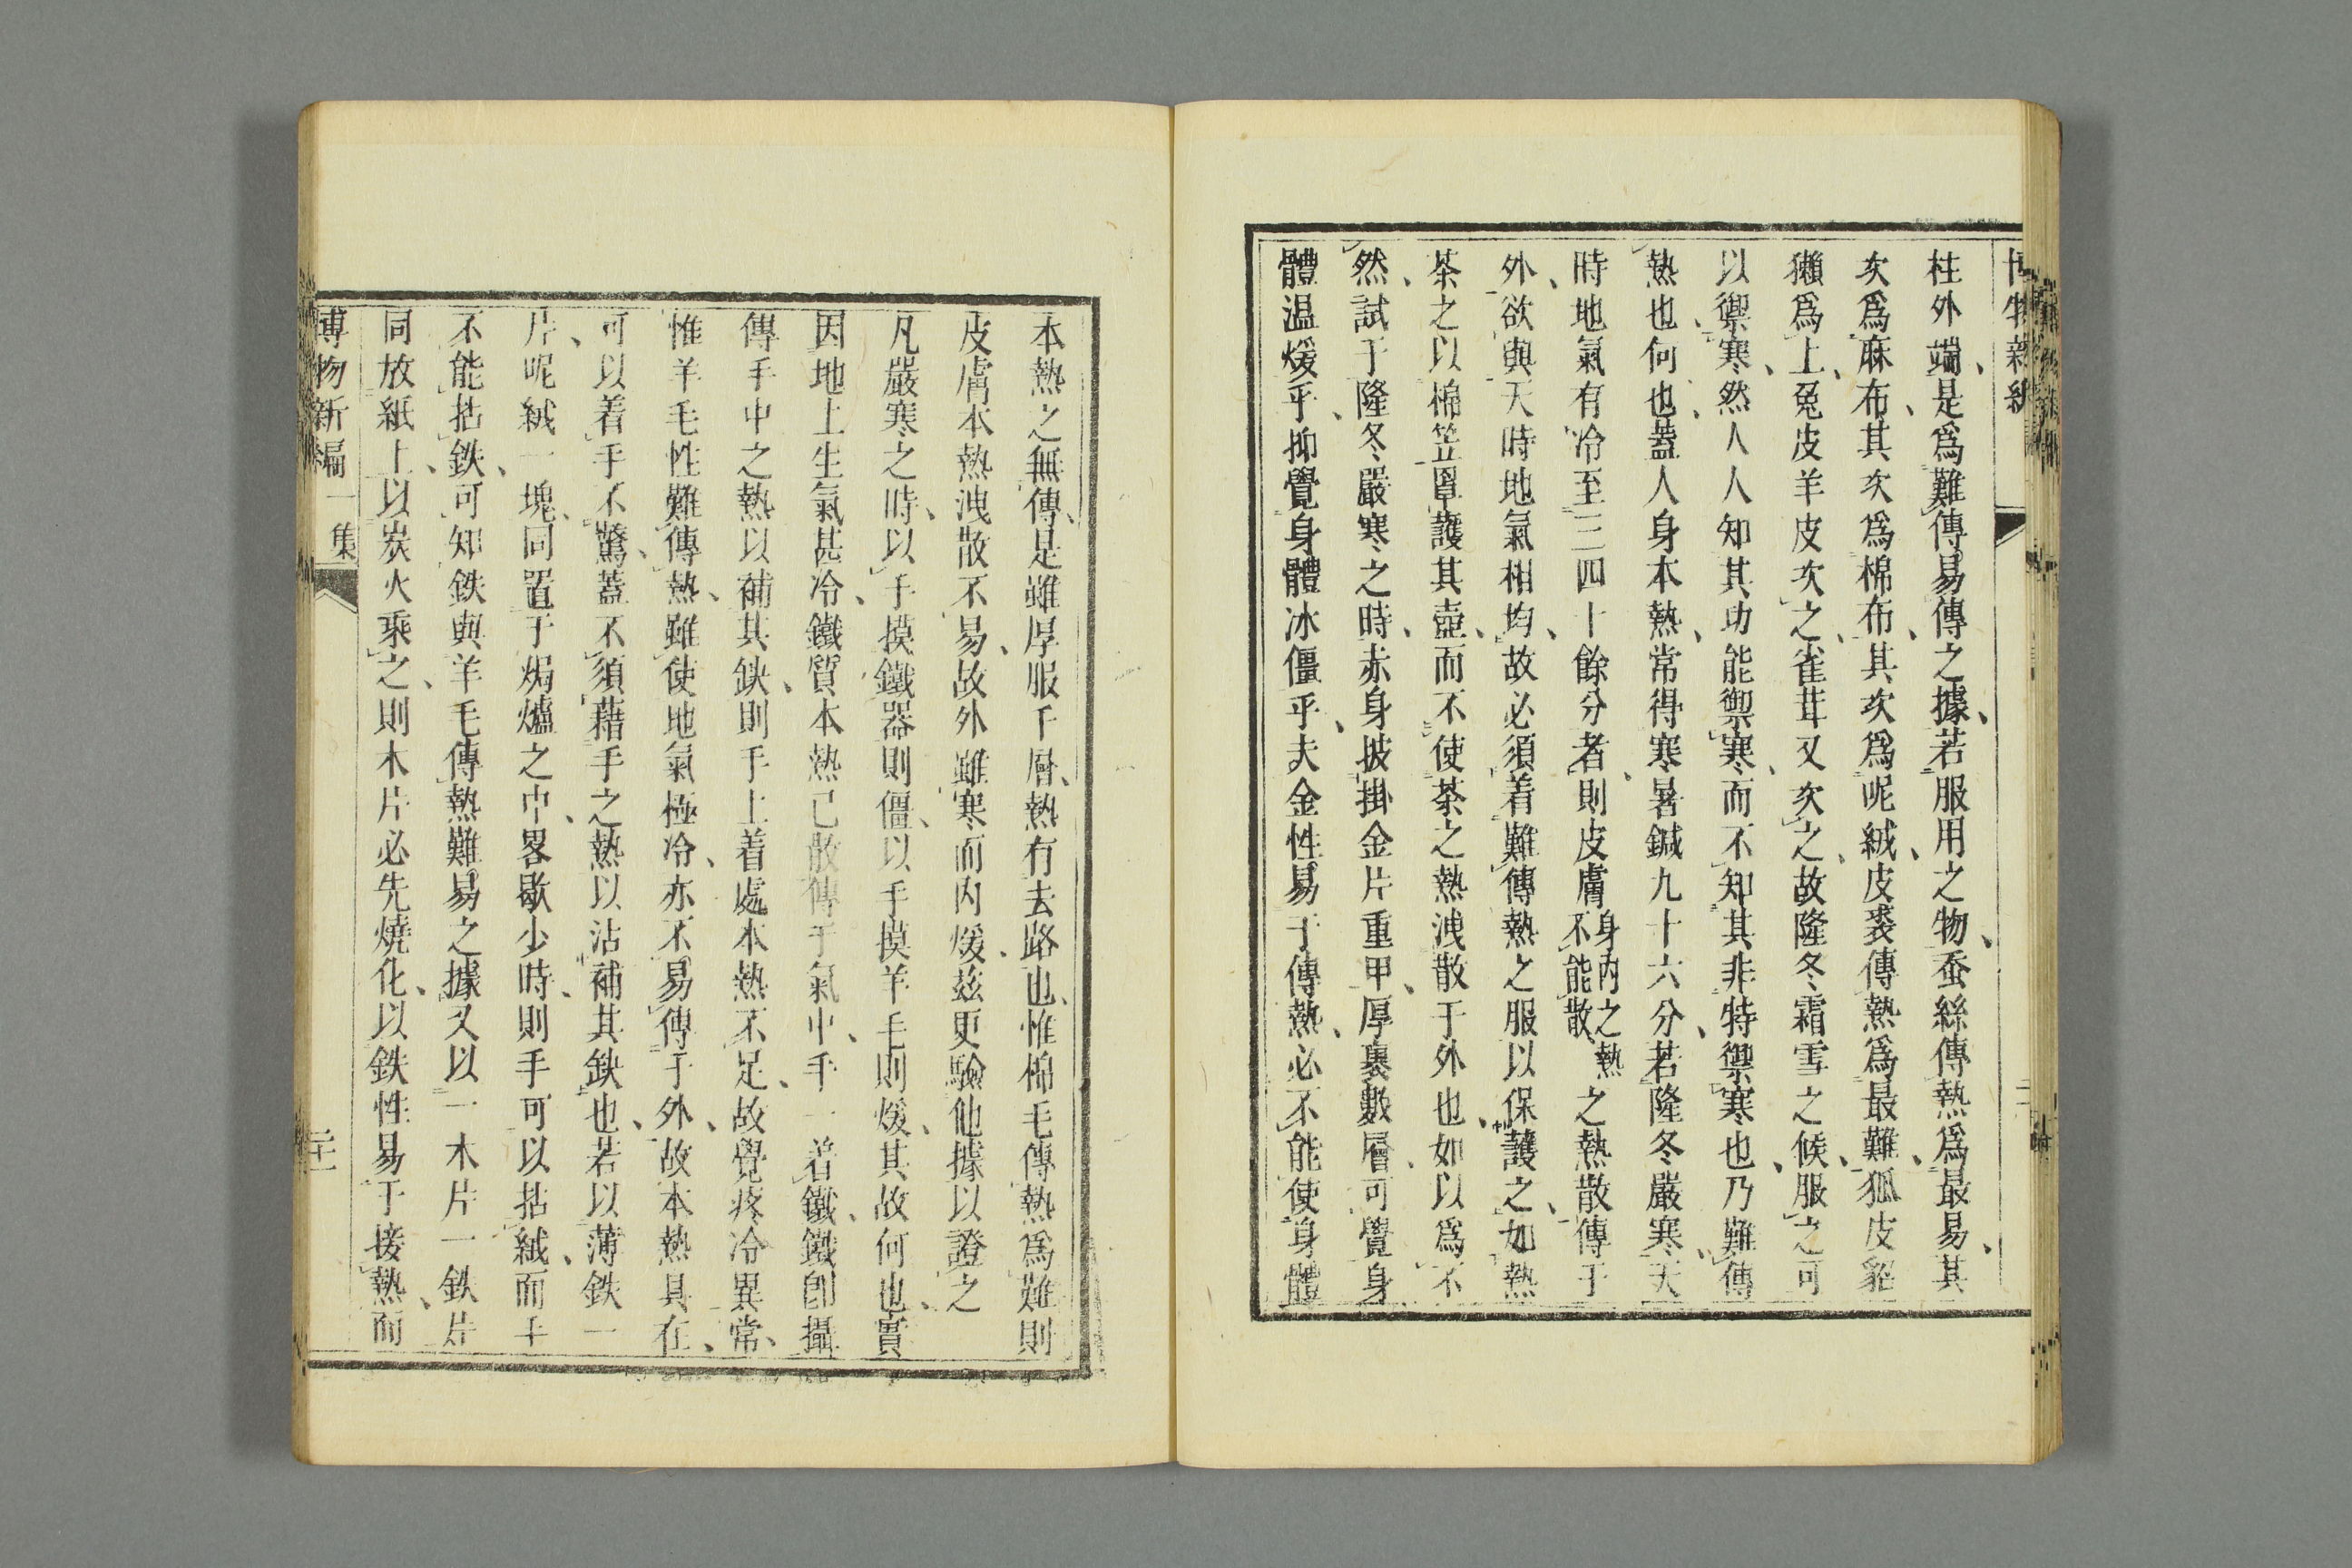 柱外端、是爲難傳易傳之據、若服用之物、蚕絲傳熱爲最易、其
次爲麻布、其次爲棉布、其次爲呢絨、皮裘傳熱爲最難、狐皮貂
獺爲上、兔皮羊皮次之、雀茸又次之、故隆冬霜雪之候、服之可
以禦寒、然人人知其功能禦寒、而不知其非特禦寒也、乃難傳
熱也、何也、蓋人身本熱、常得寒暑鍼九十六分、若隆冬嚴寒、天
時地氣有冷至三四十餘分者、則皮膚身內之熱不能散之熱散傳于
外、欲與天時地氣相均、故必須着難傳熱之服以保護之、如熱
茶之以棉笠罩護其壺、而不使茶之熱洩散于外也、如以爲不
然、試于隆冬嚴寒之時、赤身披掛金片重甲、厚裹數層、可覺身
體温煖乎、抑覺身體冰僵乎、夫金性易于傳熱、必不能使身體
本熱之無傳、是雖厚服千層、熱有去路也、惟棉毛傳熱爲難則
皮膚本熱洩散不易、故外雖寒而內煖、茲更驗他據以證之
凡嚴寒之時、以手摸鐵器則僵、以手摸羊毛則煖、其故何也、實
因地上生氣甚冷、鐵質本熱已散傳于氣中、手一着鐵、鐵卽攝
傳手中之熱以補其缺、則手上着處本熱不足、故覺疼冷異常、
惟羊毛性難傳熱、雖使地氣極冷、亦不易傳于外、故本熱具在、
可以着手不驚、蓋不須藉手之熱以沾補其缺也、若以薄鉄一
片、呢絨一塊、同置于焗爐之中、畧歇少時、則手可以拈絨、而手
不能拈鉄、可知鉄與羊毛傳熱難易之據、又以一木片一鉄片
同放紙上、以炭火乘之、則木片必先燒化、以鉄性易于接熱、而
博物新編 一集 二十一